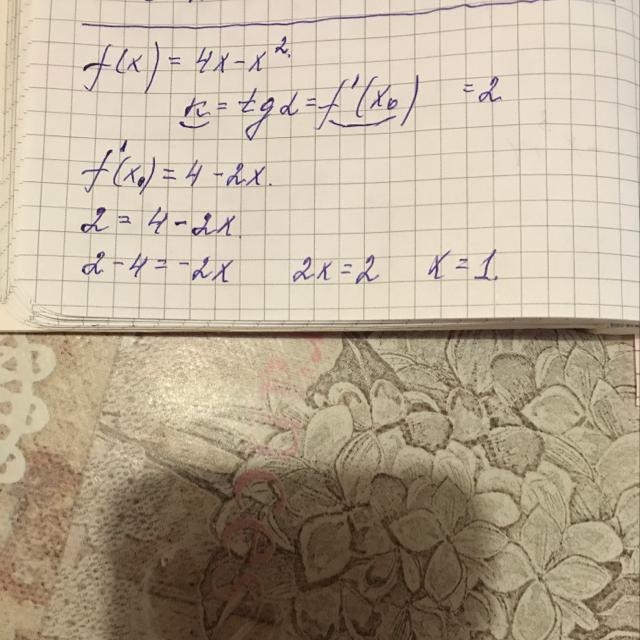 f(x) = 4x - x².
k = tg α = f'(x₀) = 2
f'(x₀) = 4 - 2x.
2 = 4 - 2x
2 - 4 = -2x 2x = 2 x = 1